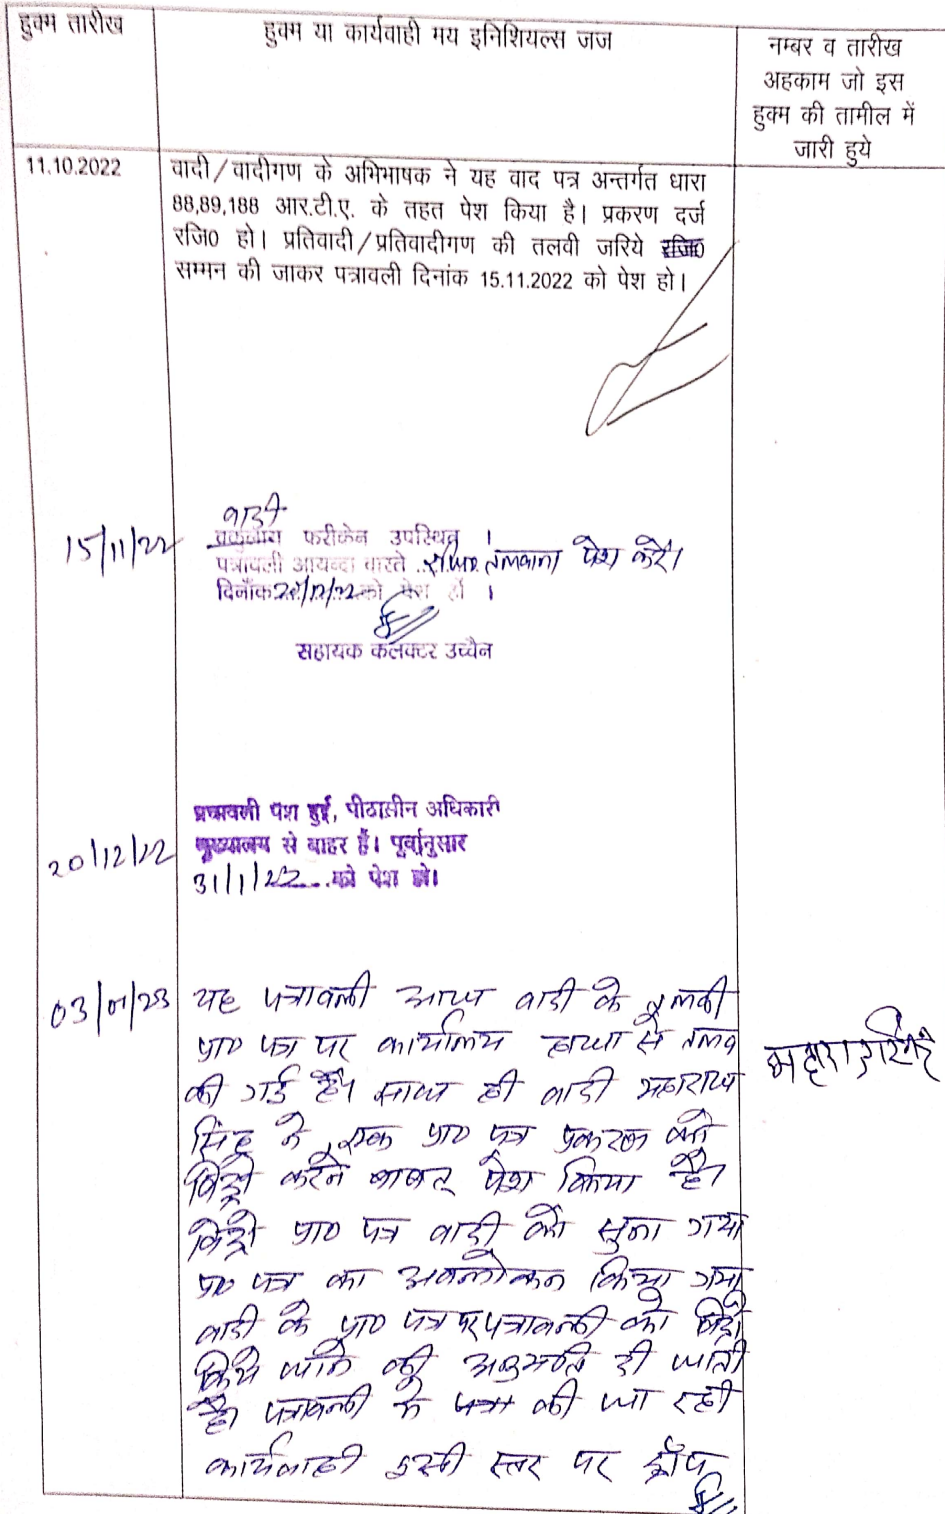 हुक्म तारीख
हुक्म या कार्यवाही मय इनिशियल्स जज
नम्बर व तारीख
अहकाम जो इस
हुक्म की तामील में
जारी हुये
11.10.2022
वादी/वादीगण के अभिभाषक ने यह वाद पत्र अन्तर्गत धारा
88,89,188 आर.टी.ए. के तहत पेश किया है। प्रकरण दर्ज
रजि0 हो। प्रतिवादी/प्रतिवादीगण की तलवी जरिये रजि0
सम्मन की जाकर पत्रावली दिनांक 15.11.2022 को पेश हो।
15/11/22
वादी
फरीकेन उपस्थित ।
पत्रावली आयन्दा वास्ते तलवाना पेश करें।
दिनाँक 20/12/22 को पेश हो ।
सहायक कलक्टर उच्चैन
20/12/22
पत्रावली पेश हुई, पीठासीन अधिकारी
मुख्यालय से बाहर हैं। पूर्वानुसार
31/1/22 को पेश हो।
03/01/23
यह पत्रावली आज वादी के जल्दी
प्रा0 पत्र पर कार्यालय हाजा से तलव
की गई है। साथ ही वादी महाराज
सिंह ने एक प्रा0 पत्र प्रकरण को
विड्रो करने बाबत् पेश किया है।
विड्रो प्रा0 पत्र वादी को सुना गया
प्रा0 पत्र का अवलोकन किया गया
वादी के प्रा0 पत्र पर पत्रावली को विड्रो
किये जाने की अनुमति दी जाती
है। पत्रावली में की जा रही
कार्यवाही इसी स्तर पर ड्रॉप
महाराजसिंह